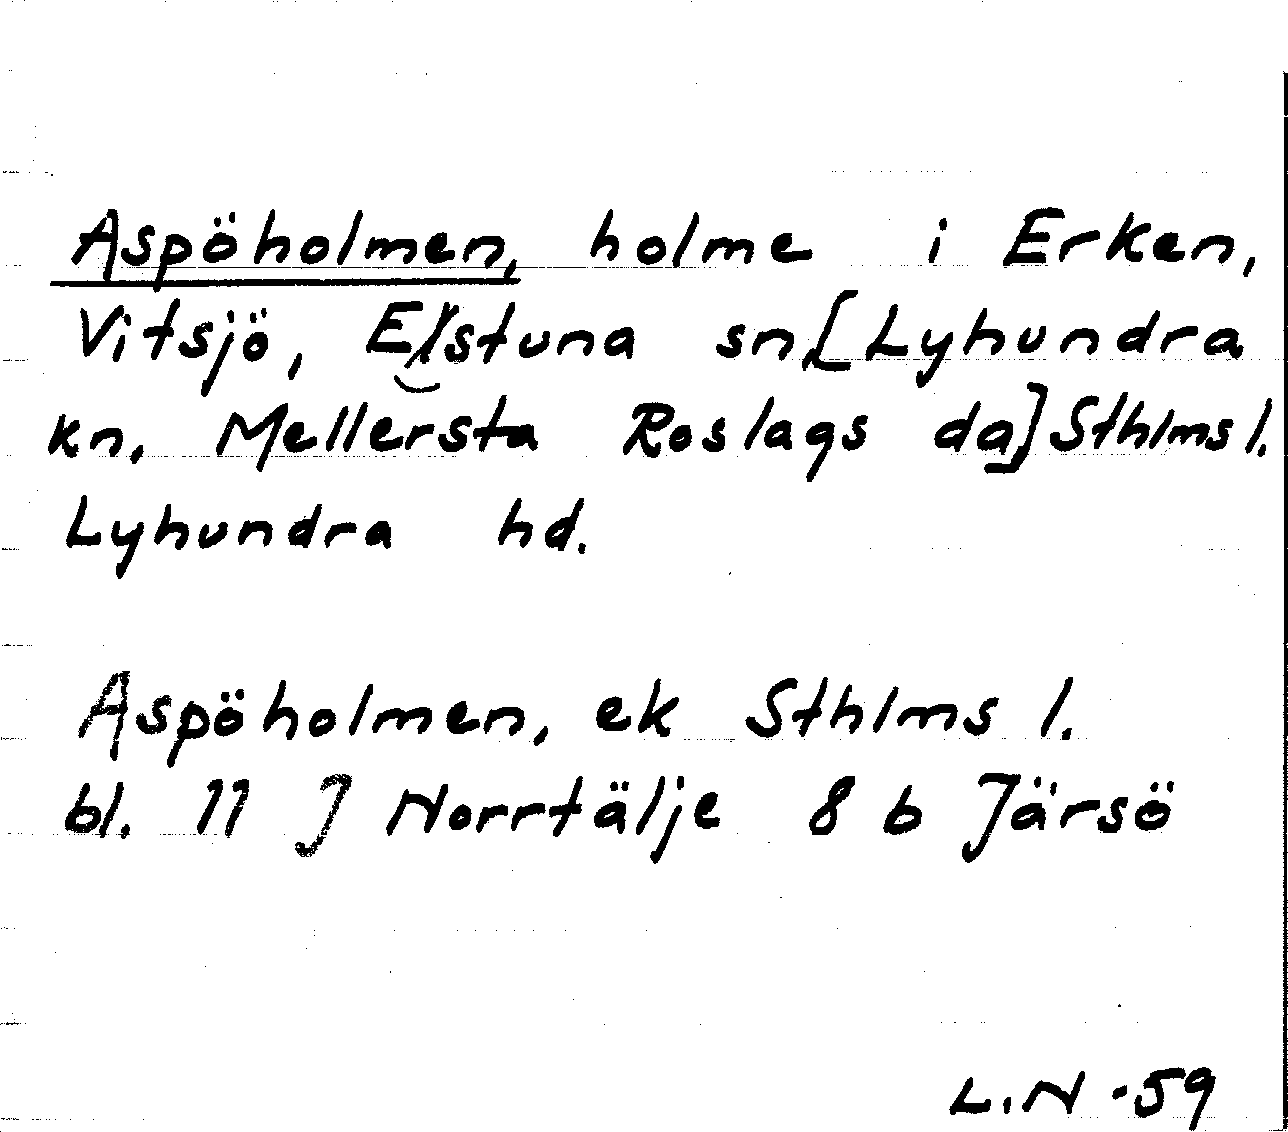 Aspöholmen, holme i Erken,
Vitsjö, Estuna sn [Lyhundra
kn, Mellersta Roslags da] Sthlms l.
Lyhundra hd.
Aspöholmen, ek Sthlms l.
bl. 11 J Norrtälje 8 b Järsö
L.N -59